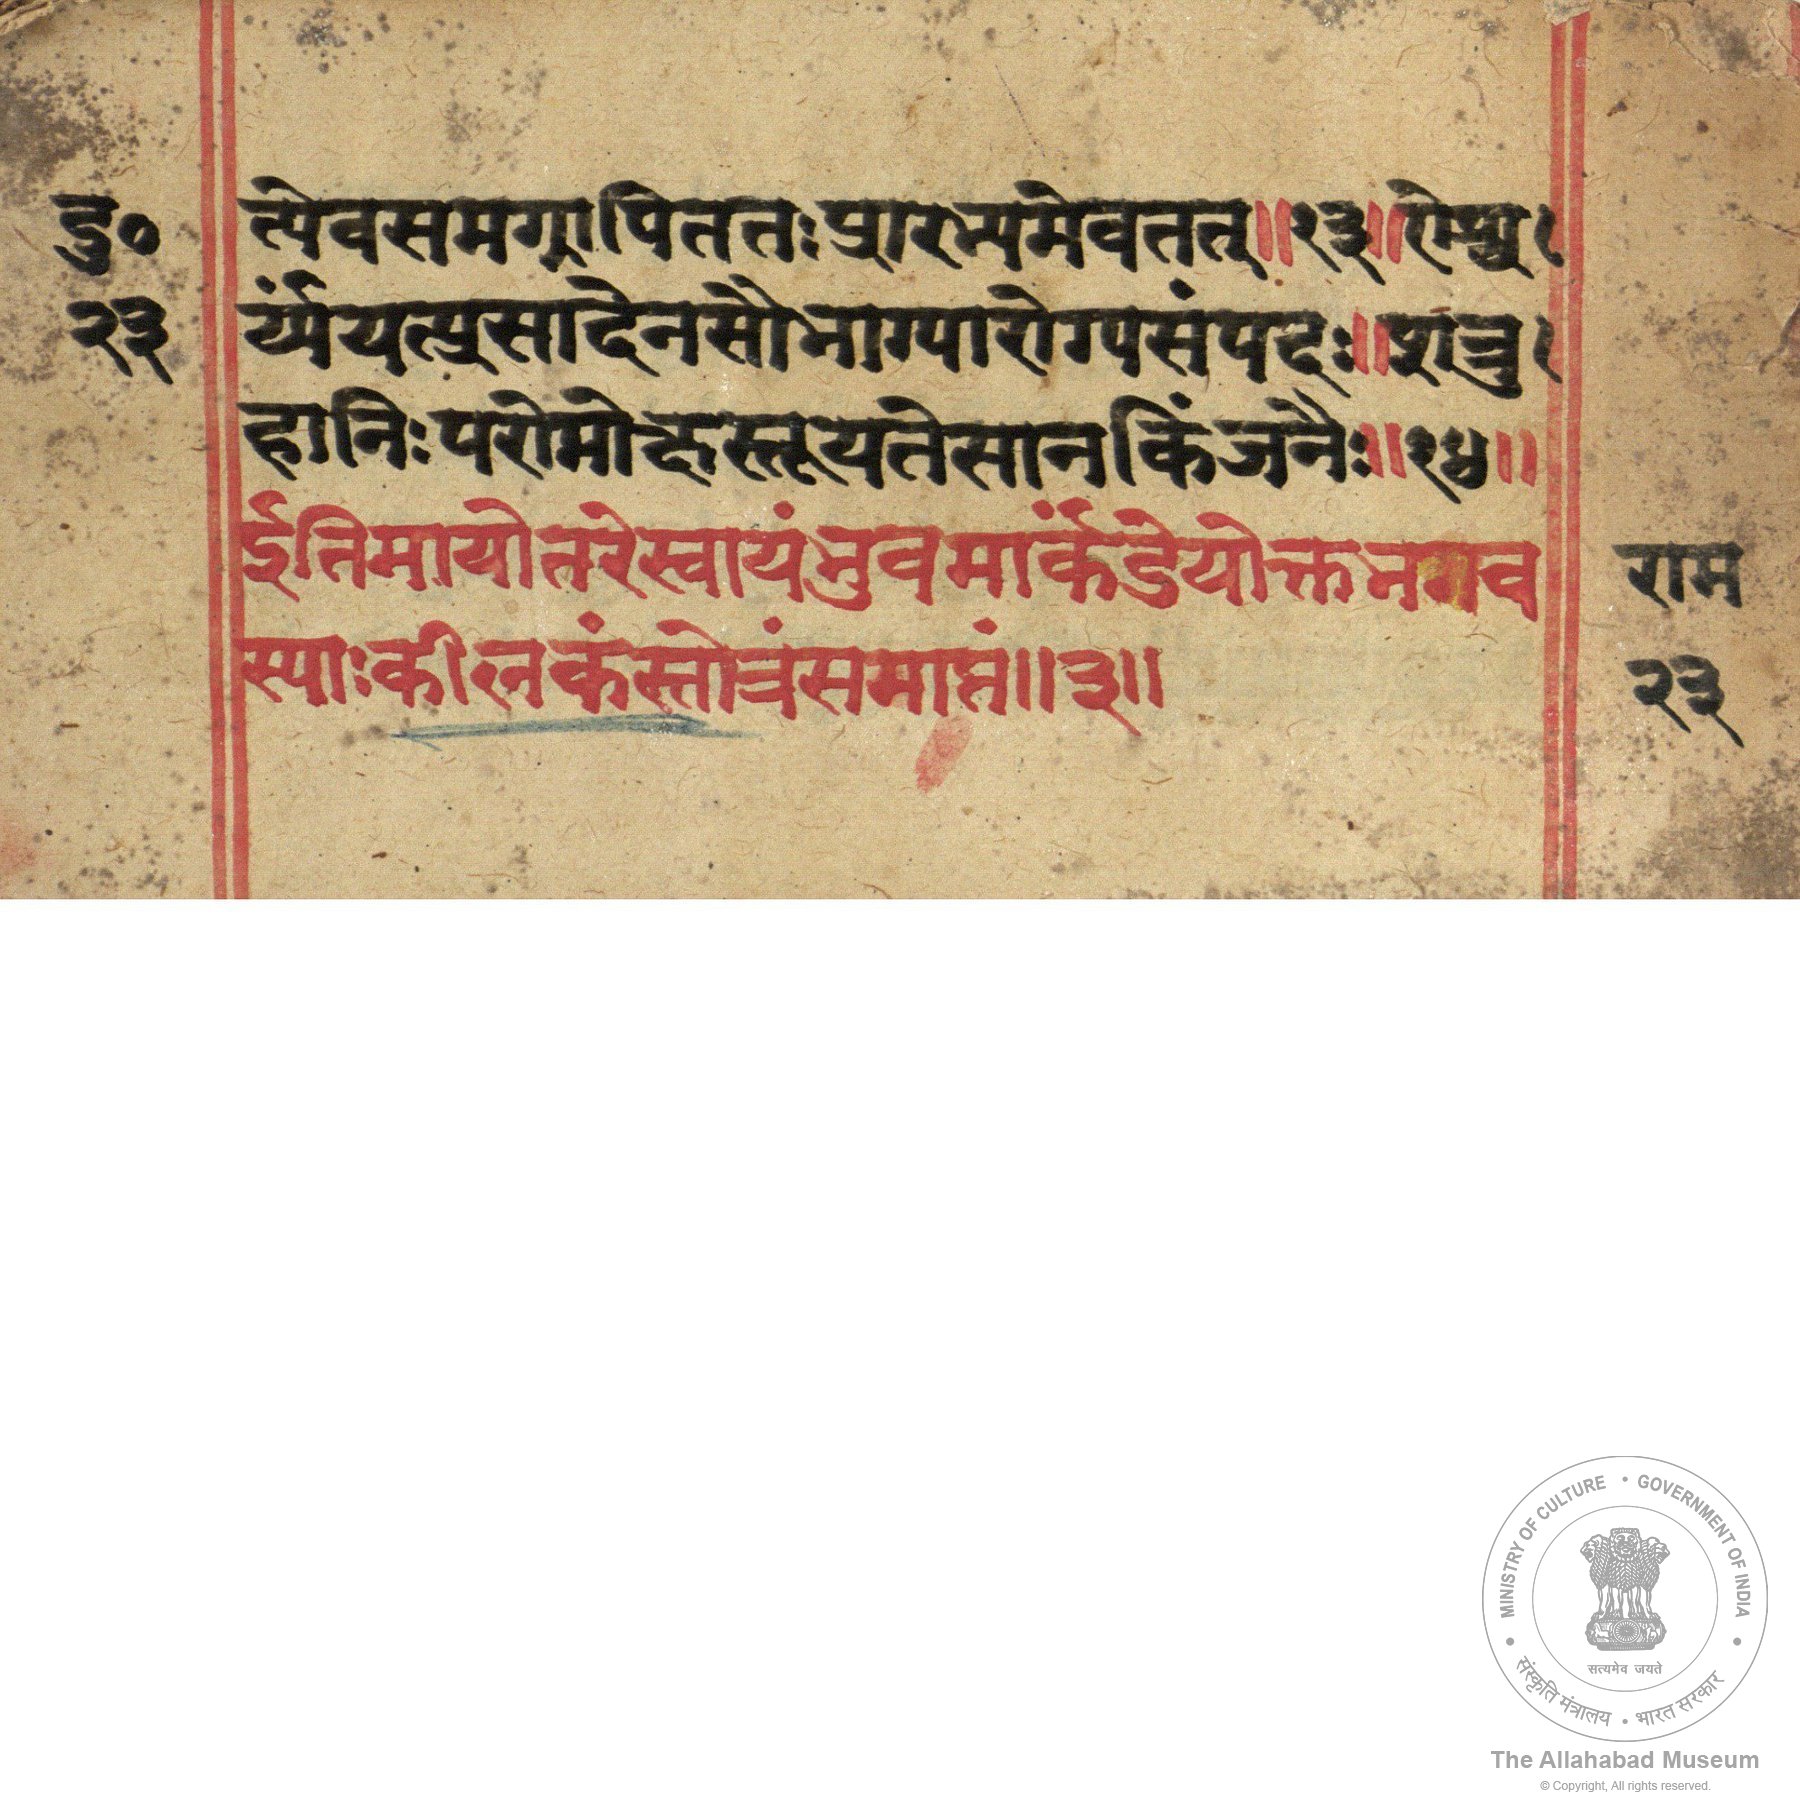 दु०
२३
त्येवसमग्रापिततःप्रारभ्यमेवतत्॥२३॥ऐश्व
र्य्यंयत्प्रसादेनसौभाग्यारोग्यसंपदः॥शत्रु
हानिःपरोमोक्षस्तूयतेसानकिंजनैः॥२४॥
ईतिमायोत्तरेस्वायंभुवमार्कंडेयोक्तभगव
त्याःकीलकंस्तोत्रंसमाप्तं॥३॥
राम
२३
MINISTRY OF CULTURE • GOVERNMENT OF INDIA
सत्यमेव जयते
संस्कृति मंत्रालय • भारत सरकार
The Allahabad Museum
© Copyright, All rights reserved.